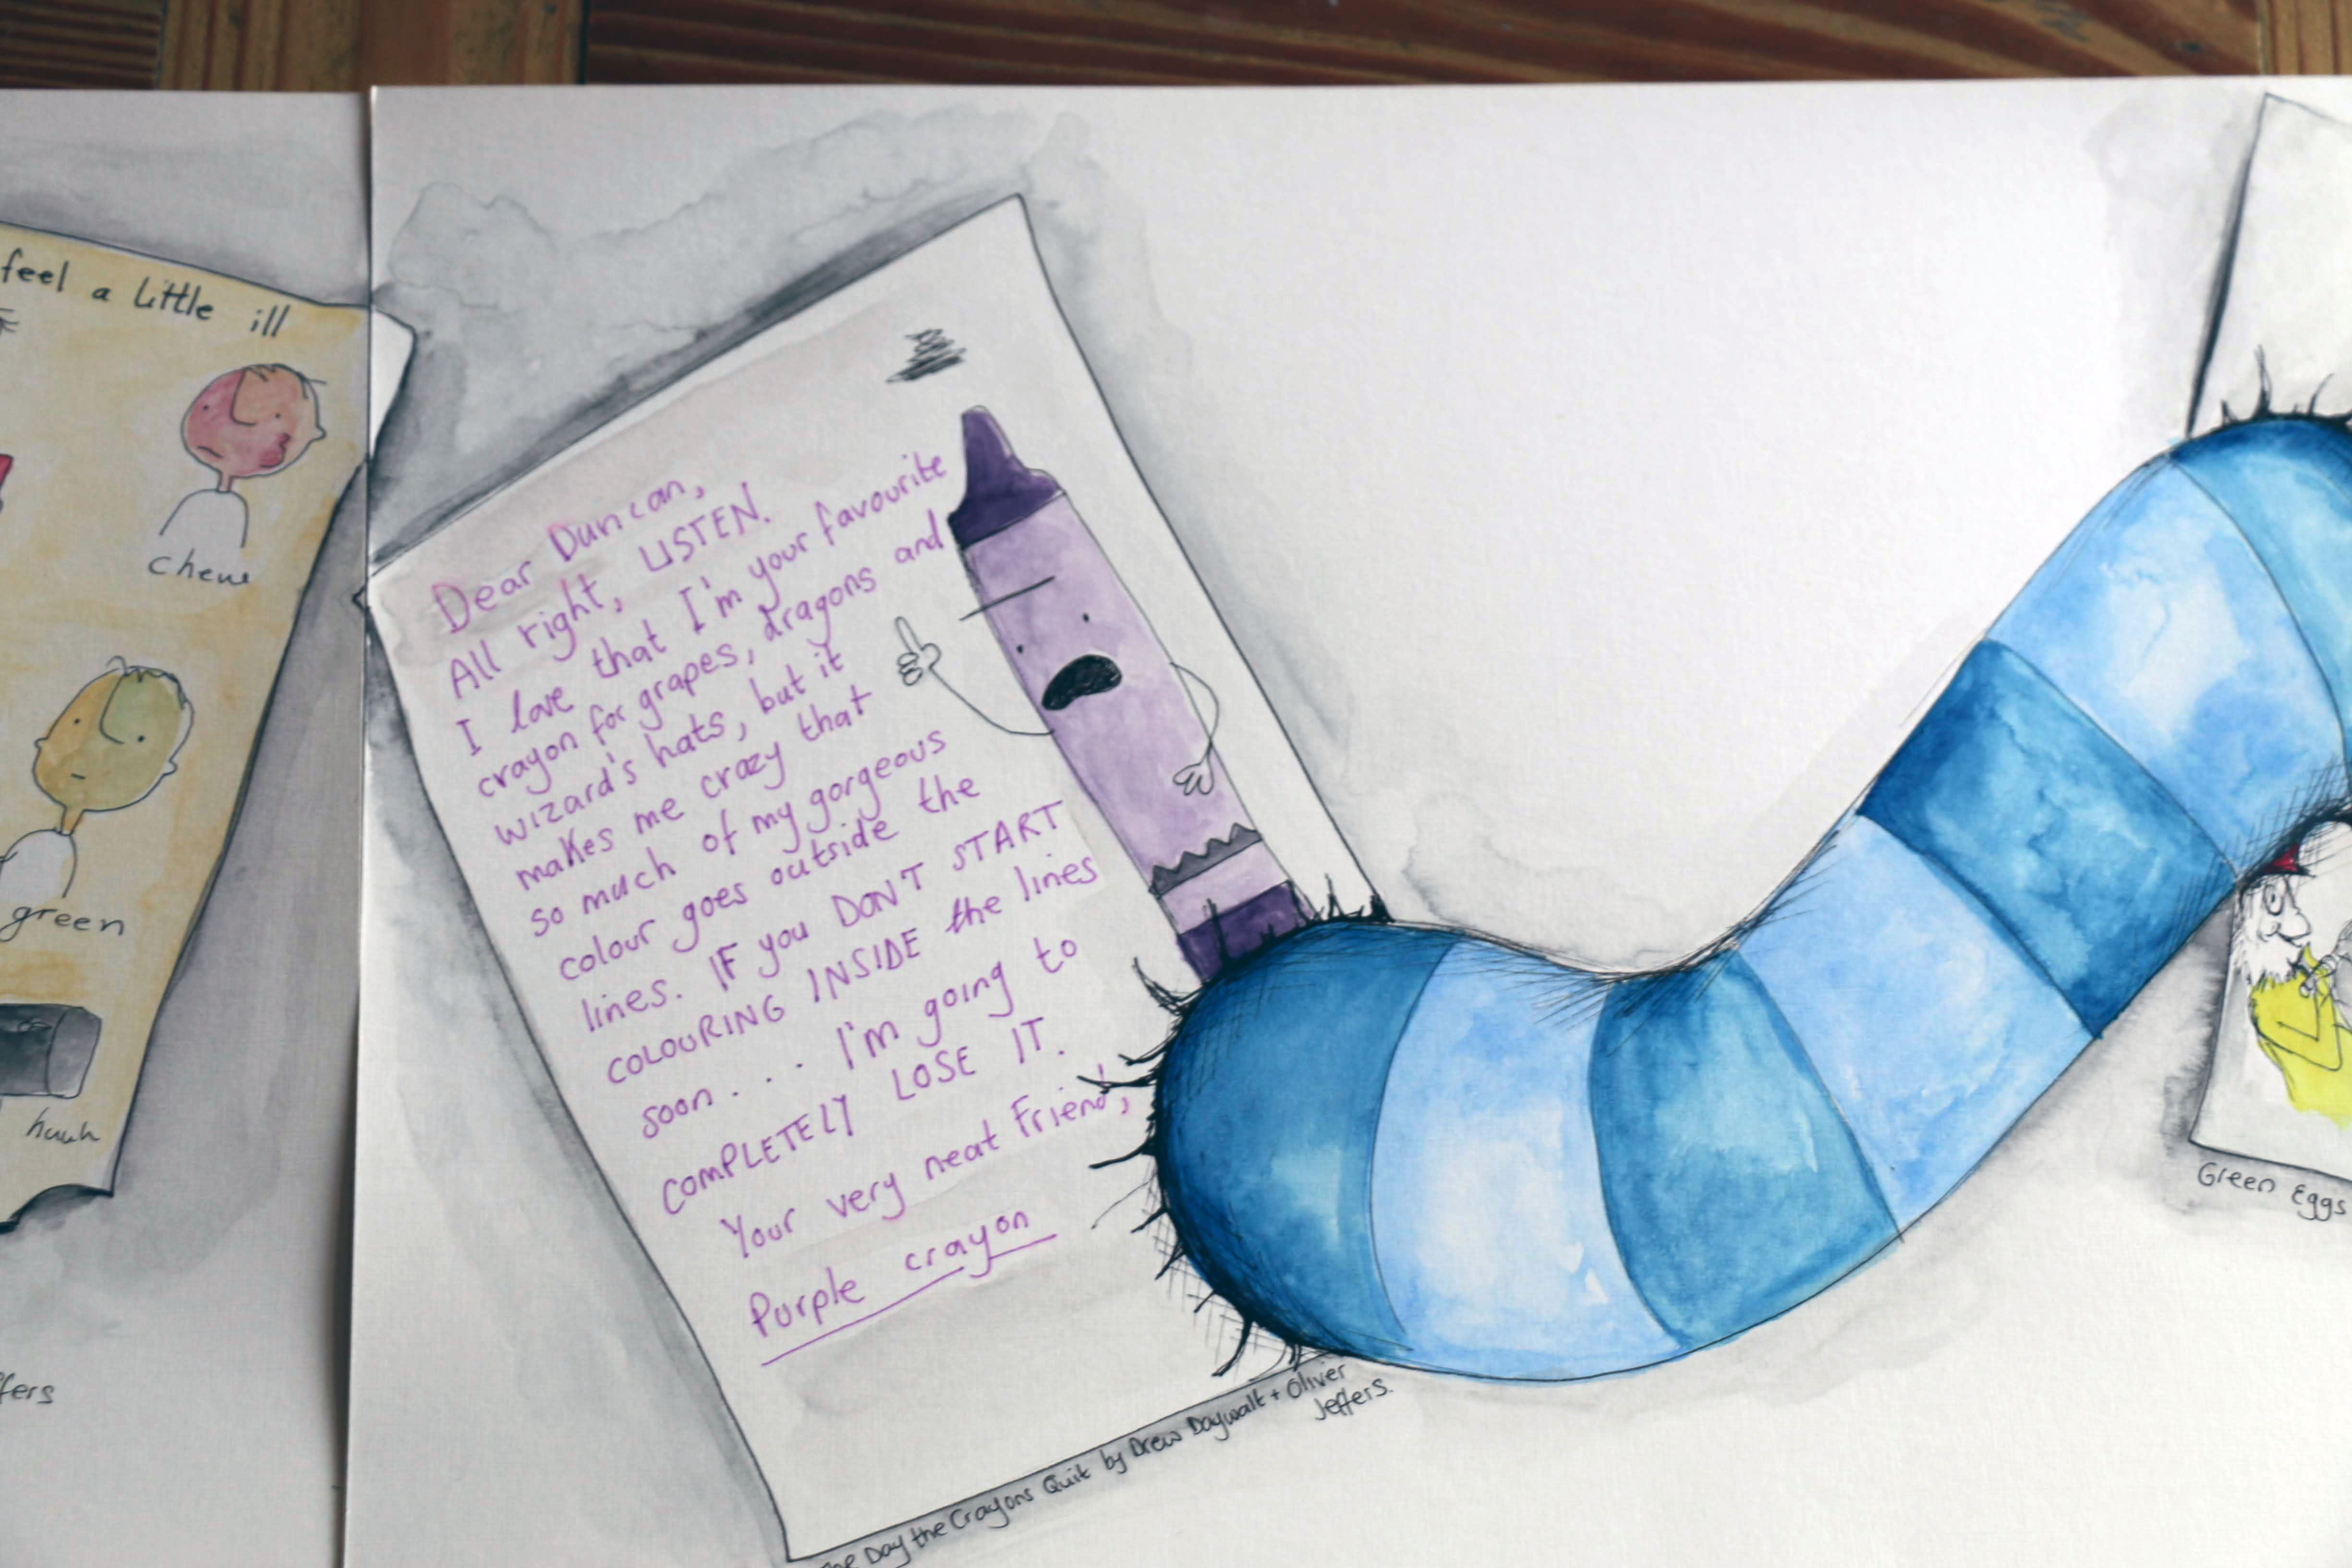 feel a little ill
chew
green
huuh
ffers
Dear Duncan,
All right, LISTEN.
I love that I'm your favourite
crayon for grapes, dragons and
wizard's hats, but it
makes me crazy that
so much of my gorgeous
colour goes outside the
lines. IF you DON'T START
COLOURING INSIDE the lines
soon... I'm going to
COMPLETELY LOSE IT.
Your very neat friend,
Purple crayon
The Day the Crayons Quit by Drew Daywalt + Oliver
Jeffers.
Green Eggs